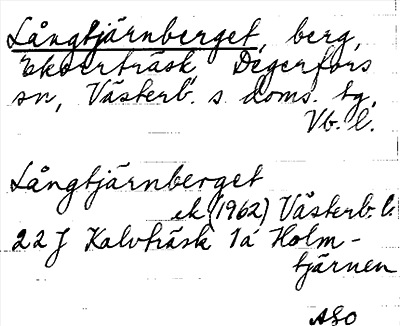 Långtjärnberget, berg,
Ekorrträsk, Degerfors
sn, Västerb. s doms. tg,
Vb. l.
Långtjärnberget
ek (1962) Västerb. l.
22 J Kalvträsk 1a Holm-
tjärnen